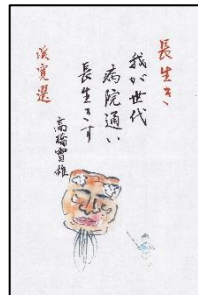 長生き
我が世代
病院通い
長生きす
高橋寶雄
渓寛選